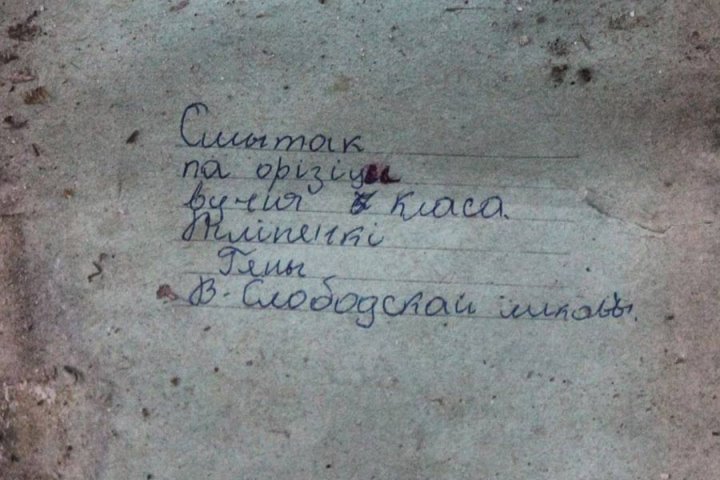 Сшытак
па фізіцы
вучня 7 класа.
Піліпенкі
Гены
В. Слободскай школы.